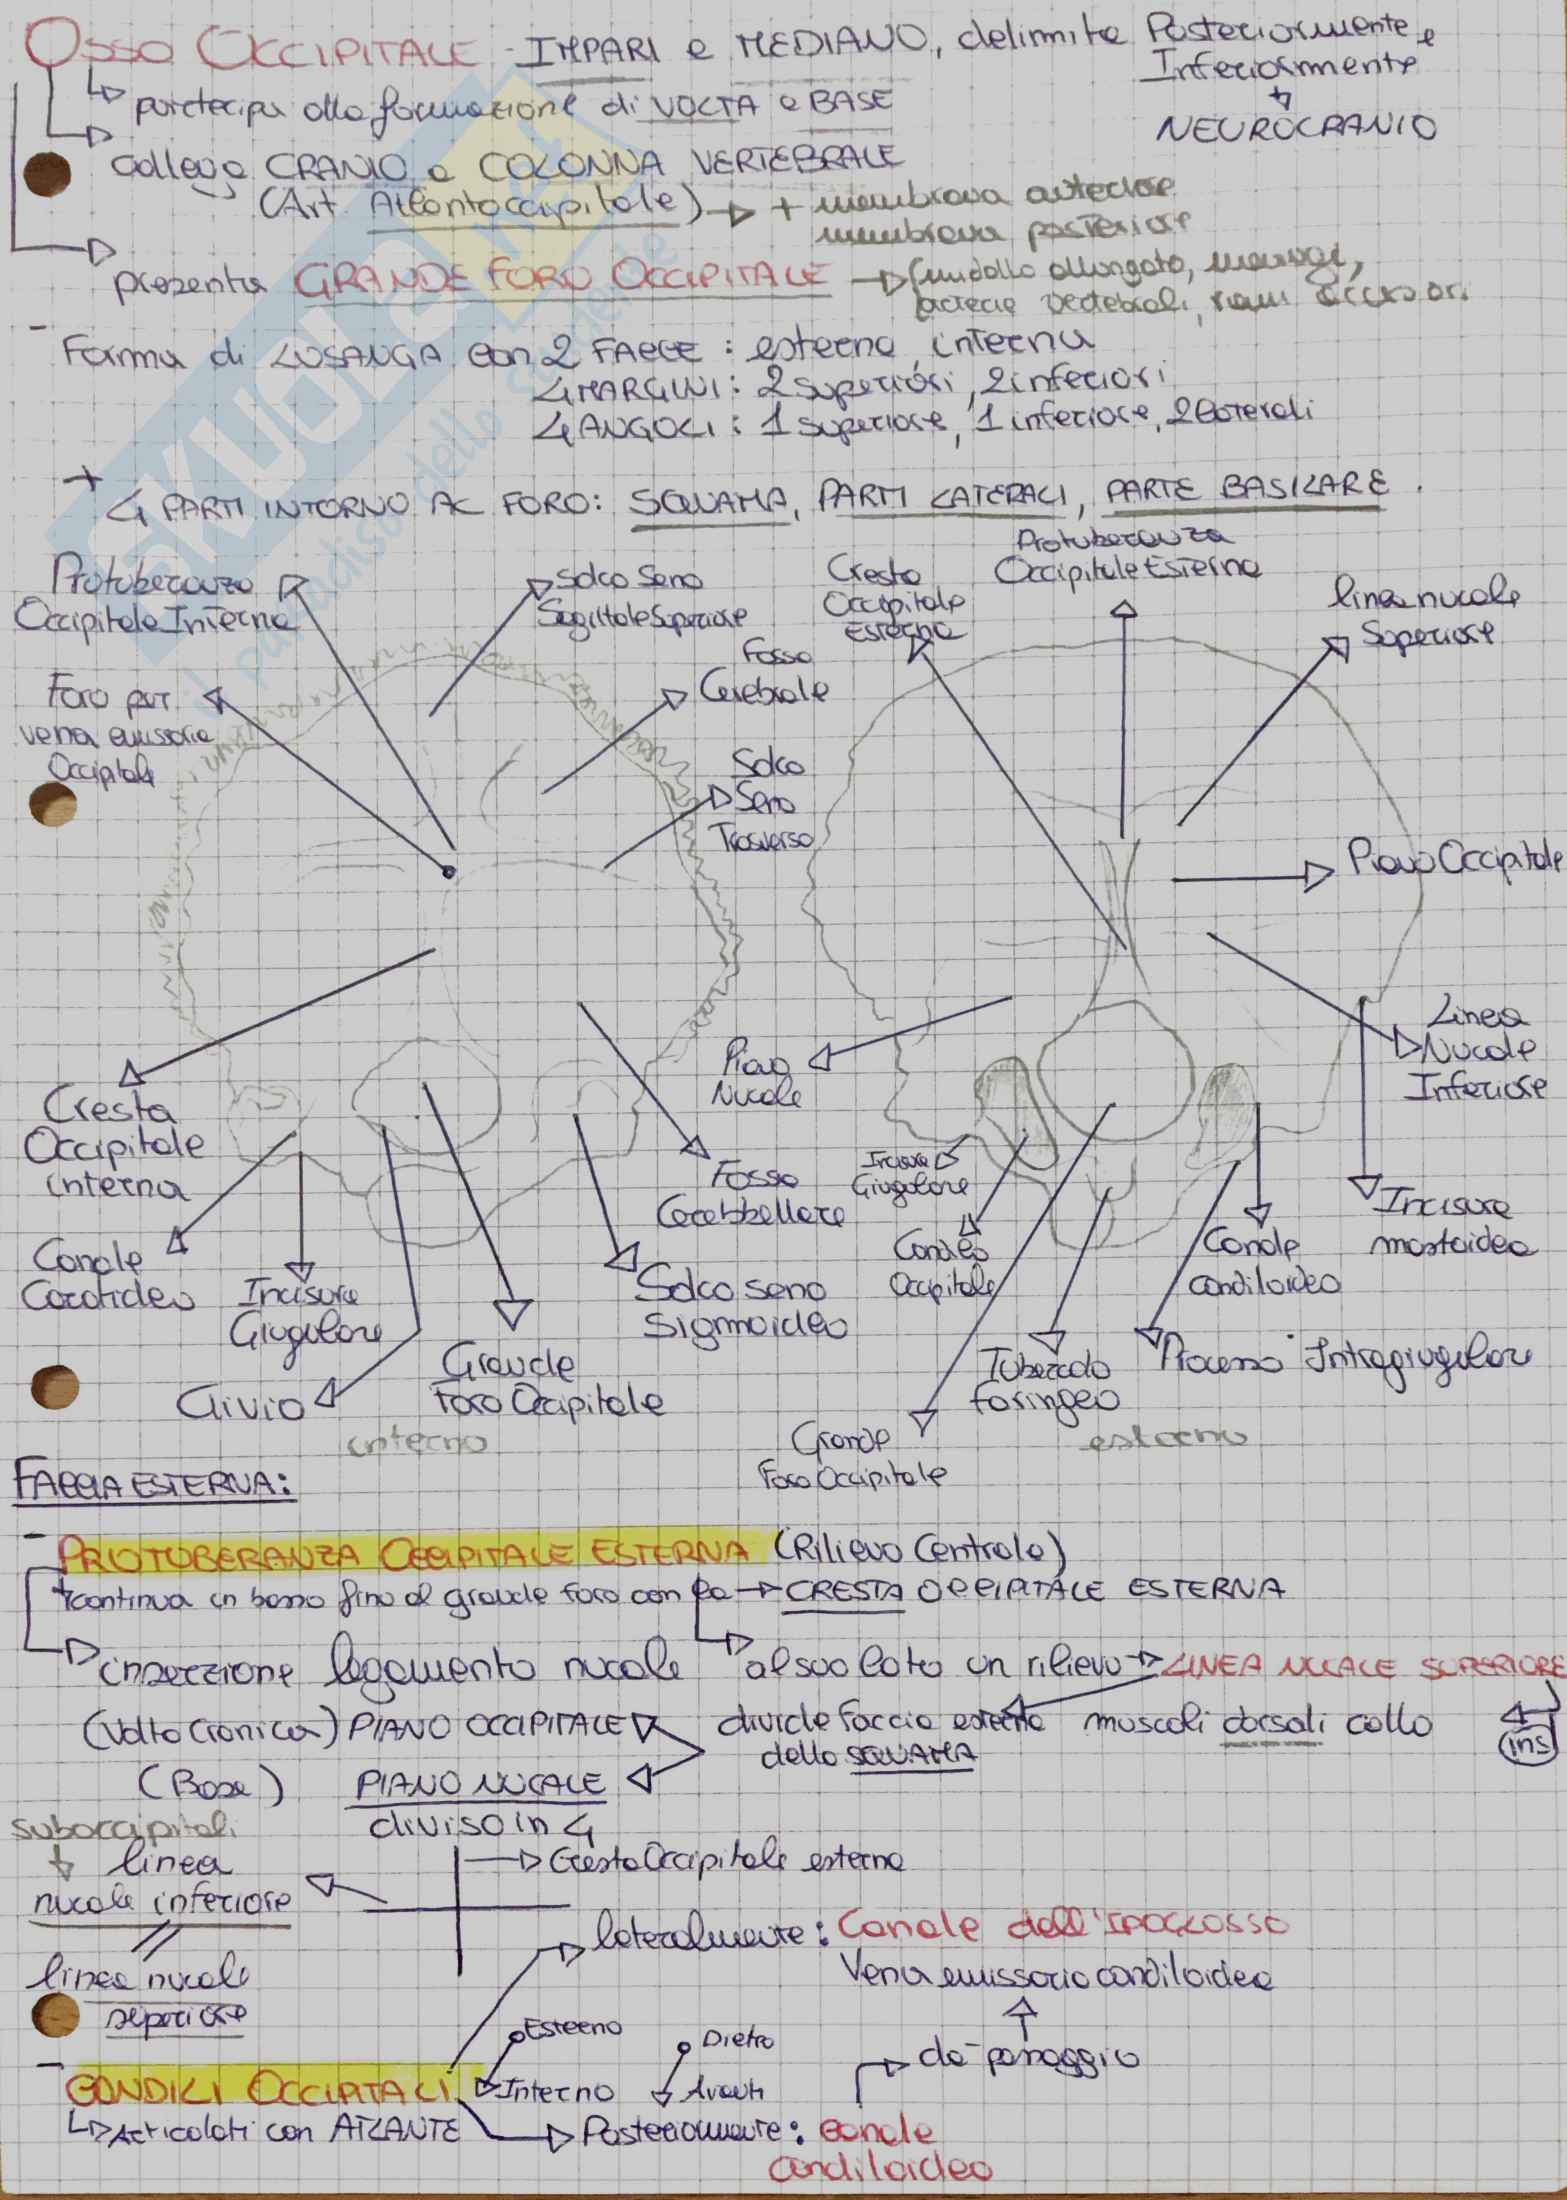 OSSO OCCIPITALE - IMPARI e MEDIANO, delimita Posteriormente e
Inferiormente
NEUROCRANIO
partecipa alla formazione di VOLTA e BASE
collega CRANIO e COLONNA VERTEBRALE
(Art. Atlantoccipitale) + membrana anteriore
membrana posteriore
presenta GRANDE FORO OCCIPITALE (midollo allungato, meningi,
arterie vertebrali, rami accessori
- Forma di LOSANGA con 2 FACCE: esterna, interna
4 MARGINI: 2 superiori, 2 inferiori
4 ANGOLI: 1 superiore, 1 inferiore, 2 laterali
+ 4 PARTI INTORNO AL FORO: SQUAMA, PARTI LATERALI, PARTE BASILARE.
Protuberanza
Occipitale Interna
Solco Seno
Sagittale Superiore
Foro per
vena emissaria
Occipitale
Fossa
Cerebrale
Solco
Seno
Trasverso
Cresta
Occipitale
interna
Canale
Carotideo
Incisura
Giugulare
Clivio
Grande
Foro Occipitale
Solco seno
Sigmoideo
Fossa
Cerebbellare
interno
Cresta
Occipitale
Esterna
Protuberanza
Occipitale Esterna
linea nucale
Superiore
Piano Occipitale
Linea
Nucale
Inferiore
Piano
Nucale
Incisura
Giugulare
Condilo
Occipitale
Grande
Foro Occipitale
Tubercolo
faringeo
Processo Intragiugulare
Canale
condiloideo
Incisura
mastoidea
esterno
FACCIA ESTERNA:
- PROTUBERANZA OCCIPITALE ESTERNA (Rilievo Centrale)
continua in basso fino al grande foro con la CRESTA OCCIPITALE ESTERNA
inserzione legamento nucale
al suo lato un rilievo LINEA NUCALE SUPERIORE
(Volta Cranica) PIANO OCCIPITALE
divide faccia esterna
della SQUAMA
muscoli dorsali collo
ins
(Base) PIANO NUCALE
diviso in 4
suboccipitali
linea
nucale inferiore
Cresta Occipitale esterna
//
linea nucale
superiore
lateralmente: Canale dell'IPOGLOSSO
Vena emissaria condiloidea
Esterno
Interno
Dietro
Avanti
da passaggio
- CONDILI OCCIPITALI
Articolati con ATLANTE
Posteriormente: canale
condiloideo
SKUOLA.net
il paradiso dello studente